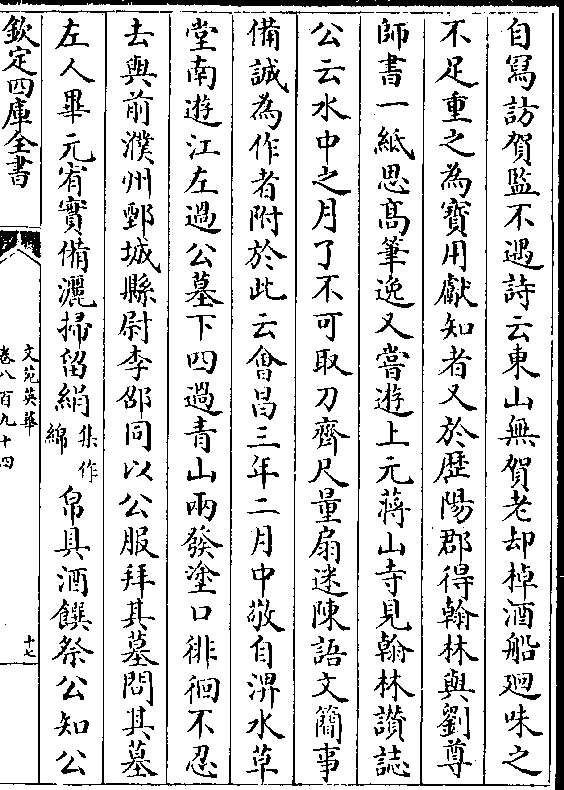 自冩訪賀監不遇詩云東山無賀老却棹酒船廻味之
不足重之為寳用獻知者又於歴陽郡得翰林與劉尊
師書一紙思髙筆逸又嘗遊上元蔣山寺見翰林讃誌
公云水中之月了不可取刀齊尺量扇迷陳語文簡事
備誠為作者附於此云㑹昌三年二月中敬自淠水草
堂南遊江左過公墓下四過青山兩發塗口徘徊不忍
去與前濮州鄄城縣尉李郃同以公服拜其墓問其墓
左人畢元宥實備灑掃留絹集作綿帛具酒饌祭公知公
欽定四庫全書
文苑英華
卷八百九十四
十七